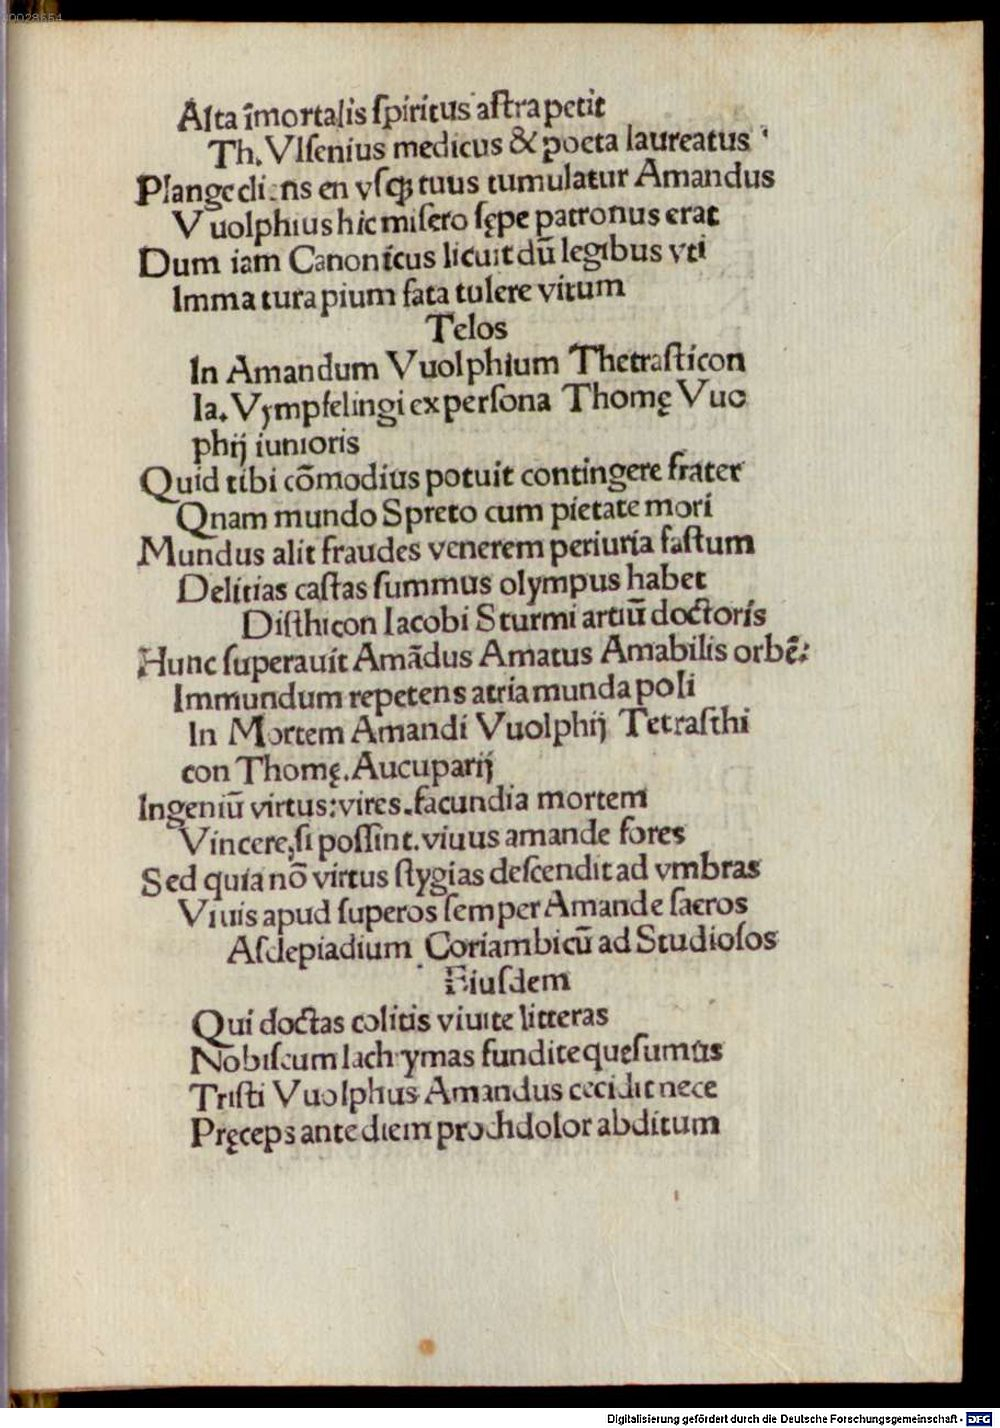 0028654
Alta īmortalis ſpiritus aſtra petit
Th. Vlſenius medicus & poeta laureatus
Plange cliens en vſqꝫ tuus tumulatur Amandus
Vuolphius hic miſero ſępe patronus erat
Dum iam Canonicus licuit dū legibus vti
Imma tura pium fata tulere virum
Telos
In Amandum Vuolphium Thetraſticon
Ia. Vympfelingi ex perſona Thomę Vuo
phij iunioris
Quid tibi cōmodius potuit contingere frater
Qnam mundo Spreto cum pietate mori
Mundus alit fraudes venerem periuria faſtum
Delitias caſtas ſummus olympus habet
Diſthicon Iacobi Sturmi artiū doctoris
Hunc ſuperauit Amādus Amatus Amabilis orbē:
Immundum repetens atria munda poli
In Mortem Amandi Vuolphij Tetraſthi
con Thomę. Aucuparij
Ingeniū virtus: vires. facundia mortem
Vincere, ſi poſſint. viuus amande fores
Sed quia nō virtus ſtygias deſcendit ad vmbras
Viuis apud ſuperos ſemper Amande ſacros
Aſclepiadium Coriambicū ad Studioſos
Eiuſdem
Qui doctas colitis viuite litteras
Nobiſcum lachrymas fundite queſumus
Triſti Vuolphus Amandus cecidit nece
Pręceps ante diem proch dolor abditum
Digitalisierung gefördert durch die Deutsche Forschungsgemeinschaft - DFG